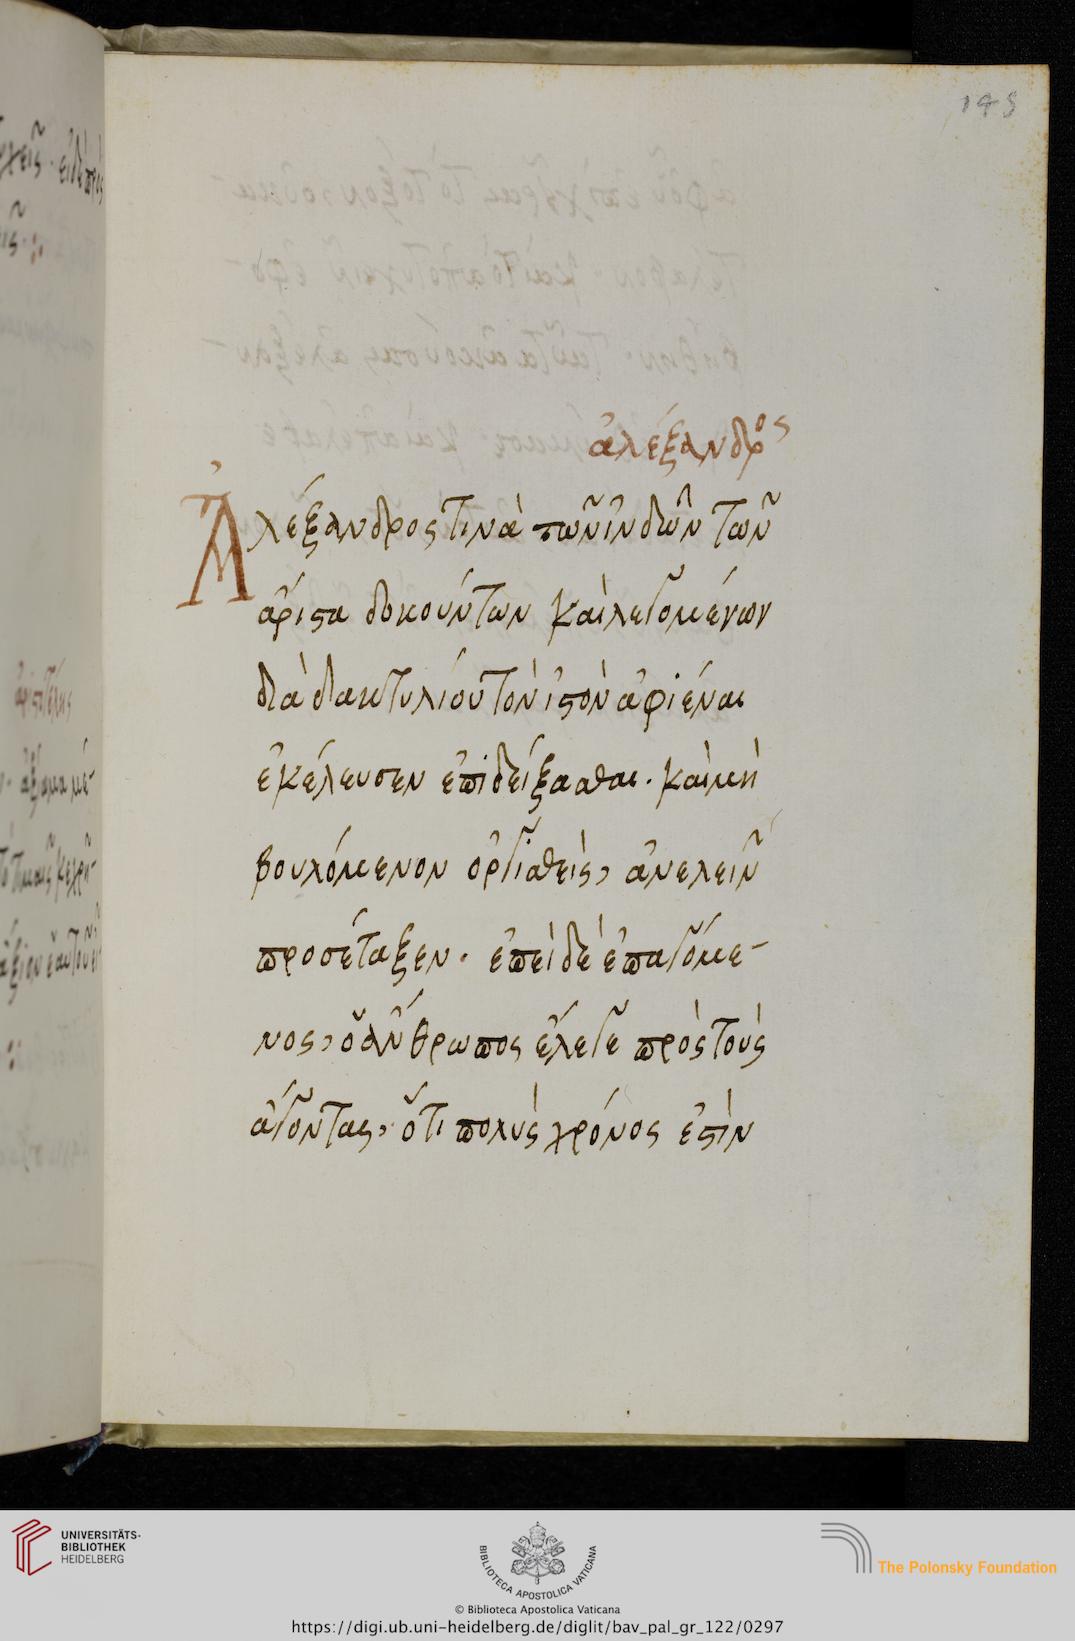 145
ἀλέξανδρος
Ἀλέξανδρος τινὰ τῶν ἰνδῶν τῶν
ἄριστα δοκούντων καὶ λεγομένων
διὰ δακτυλίου τὸν ἰστὸν ἀφιέναι
ἐκέλευσεν ἐπιδείξασθαι. καὶ μὴ
βουλόμενον ὀργισθεὶς, ἀνελεῖν
προσέταξεν. ἐπεὶ δὲ ἐπαγόμε-
νος, ὁ ἄνθρωπος ἔλεγε πρὸς τοὺς
ἄγοντας, ὅτι πολὺς χρόνος ἐστὶν
UNIVERSITÄTS-
BIBLIOTHEK
HEIDELBERG
BIBLIOTECA APOSTOLICA VATICANA
The Polonsky Foundation
© Biblioteca Apostolica Vaticana
https://digi.ub.uni-heidelberg.de/diglit/bav_pal_gr_122/0297